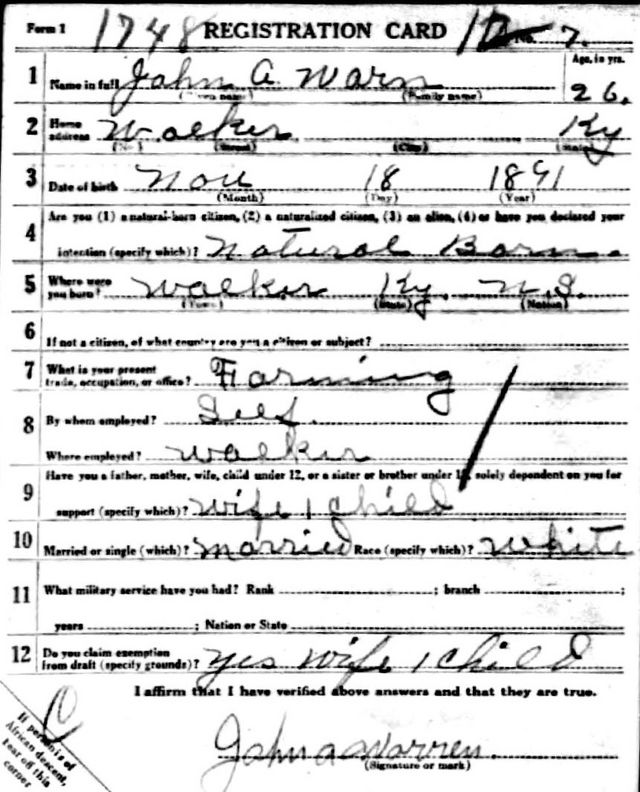 Form 1 1748 REGISTRATION CARD No. 7.
1 Name in full John A Warn Age, in yrs.
(Given name) (Family name) 26.
2 Home address Walker Ky
(No.) (Street) (City) (State)
3 Date of birth Nov 18 1891
(Month) (Day) (Year)
4 Are you (1) a natural-born citizen, (2) a naturalized citizen, (3) an alien, (4) or have you declared your
intention (specify which)? Natural Born.
5 Where were you born? Walker Ky. U.S.
(Town) (State) (Nation)
6 If not a citizen, of what country are you a citizen or subject?
7 What is your present trade, occupation, or office? Farming
8 By whom employed? Self.
Where employed? Walker
9 Have you a father, mother, wife, child under 12, or a sister or brother under 12, solely dependent on you for
support (specify which)? wife 1 child
10 Married or single (which)? married Race (specify which)? White
11 What military service have you had? Rank ; branch ;
years ; Nation or State
12 Do you claim exemption from draft (specify grounds)? Yes wife 1 child
I affirm that I have verified above answers and that they are true.
John A Warren.
(Signature or mark)
If person is of
African descent,
tear off this
corner